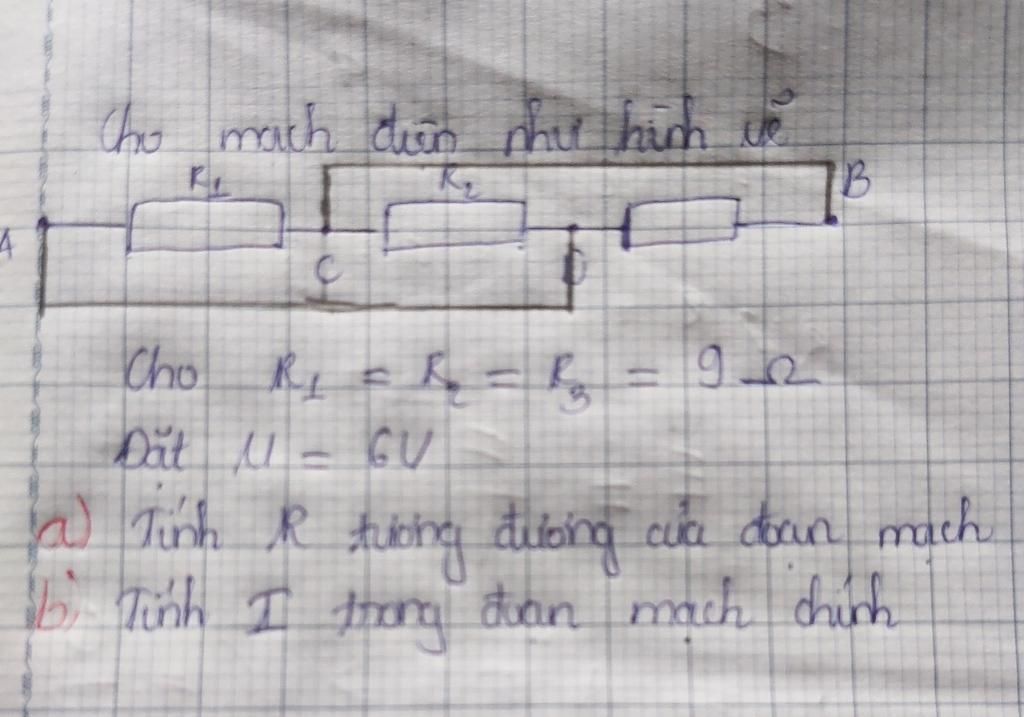 Cho mạch điện như hình vẽ
R1 R2 B
A
C D
Cho R1 = R2 = R3 = 9 Ω
Đặt U = 6V
a) Tính R tương đương của đoạn mạch
b) Tính I trong đoạn mạch chính